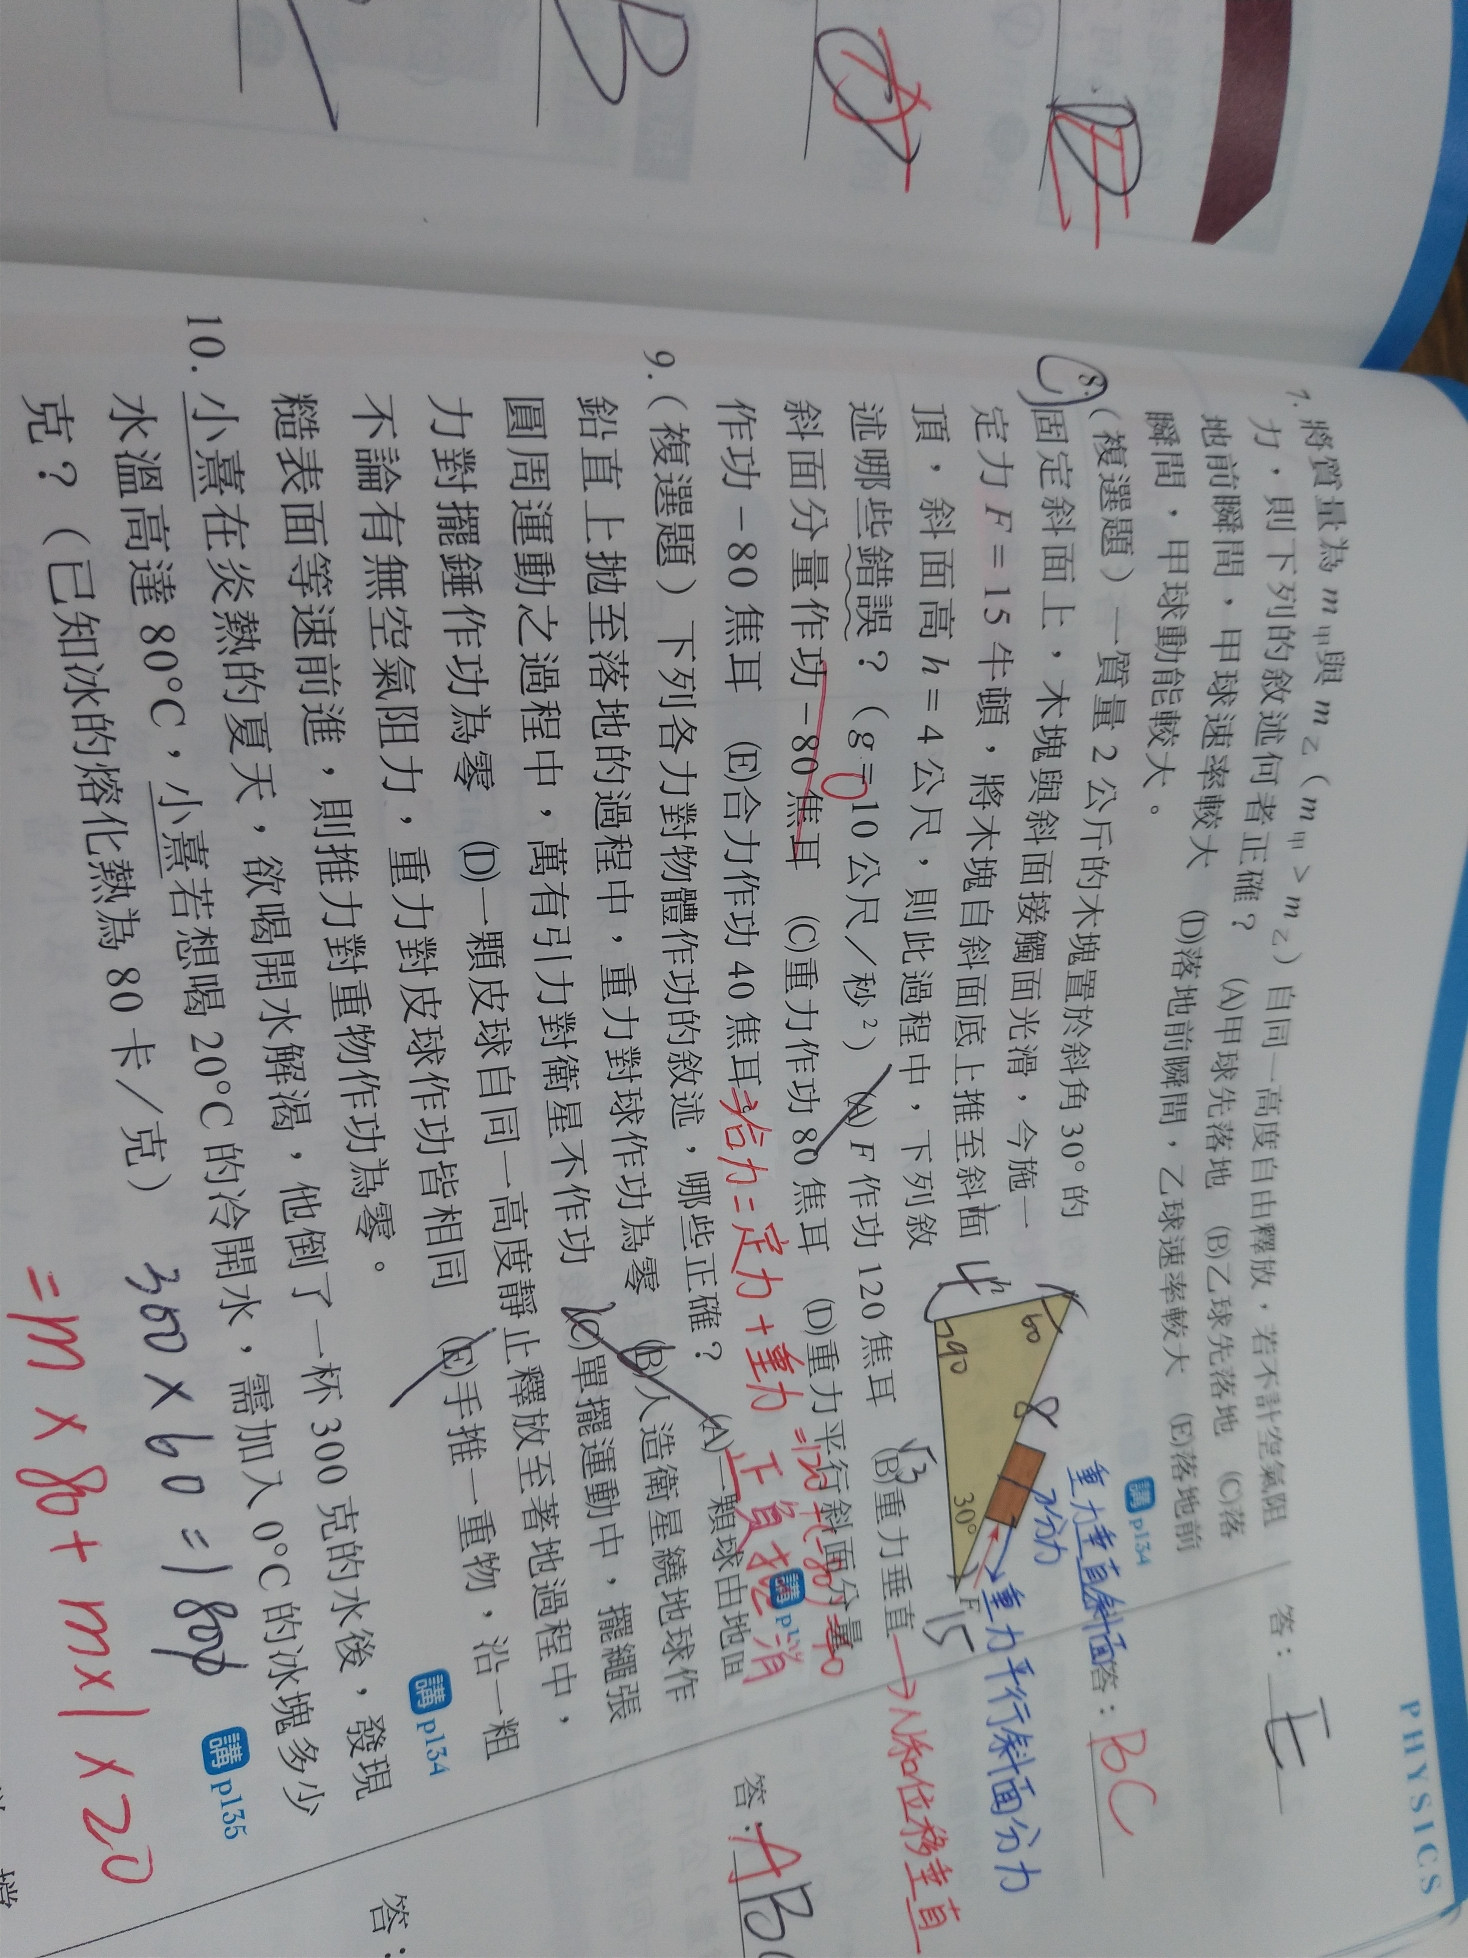 PHYSICS
7. 將質量為 m甲與 m乙（m甲 > m乙）自同一高度自由釋放，若不計空氣阻
力，則下列的敘述何者正確？ (A)甲球先落地 (B)乙球先落地 (C)落
地前瞬間，甲球速率較大 (D)落地前瞬間，乙球速率較大 (E)落地前
瞬間，甲球動能較大。
答：E
講 p134
8.（複選題）一質量 2 公斤的木塊置於斜角 30° 的
固定斜面上，木塊與斜面接觸面光滑，今施一
定力 F = 15 牛頓，將木塊自斜面底上推至斜面
頂，斜面高 h = 4 公尺，則此過程中，下列敘
述哪些錯誤？（g = 10 公尺／秒²） (A) F 作功 120 焦耳 (B)重力垂直
斜面分量作功 −80 焦耳 (C)重力作功 80 焦耳 (D)重力平行斜面分量
作功 −80 焦耳 (E)合力作功 40 焦耳
答：BC
0
h
4
60
90
8
30°
F
15
√3
分力
重力垂直斜面
重力平行斜面分力
→N和位移垂直
合力=定力+重力
正負抵消
9.（複選題）下列各力對物體作功的敘述，哪些正確？ (A)一顆球由地面
鉛直上拋至落地的過程中，重力對球作功為零 (B)人造衛星繞地球作
圓周運動之過程中，萬有引力對衛星不作功 (C)單擺運動中，擺繩張
力對擺錘作功為零 (D)一顆皮球自同一高度靜止釋放至著地過程中，
不論有無空氣阻力，重力對皮球作功皆相同 (E)手推一重物，沿一粗
糙表面等速前進，則推力對重物作功為零。
答：AB
講 p134
10. 小熹在炎熱的夏天，欲喝開水解渴，他倒了一杯 300 克的水後，發現
水溫高達 80°C，小熹若想喝 20°C 的冷開水，需加入 0°C 的冰塊多少
克？（已知冰的熔化熱為 80 卡／克）
講 p135
答：
300 × 60 = 1800
= m × 80 + m×1 × 20
B